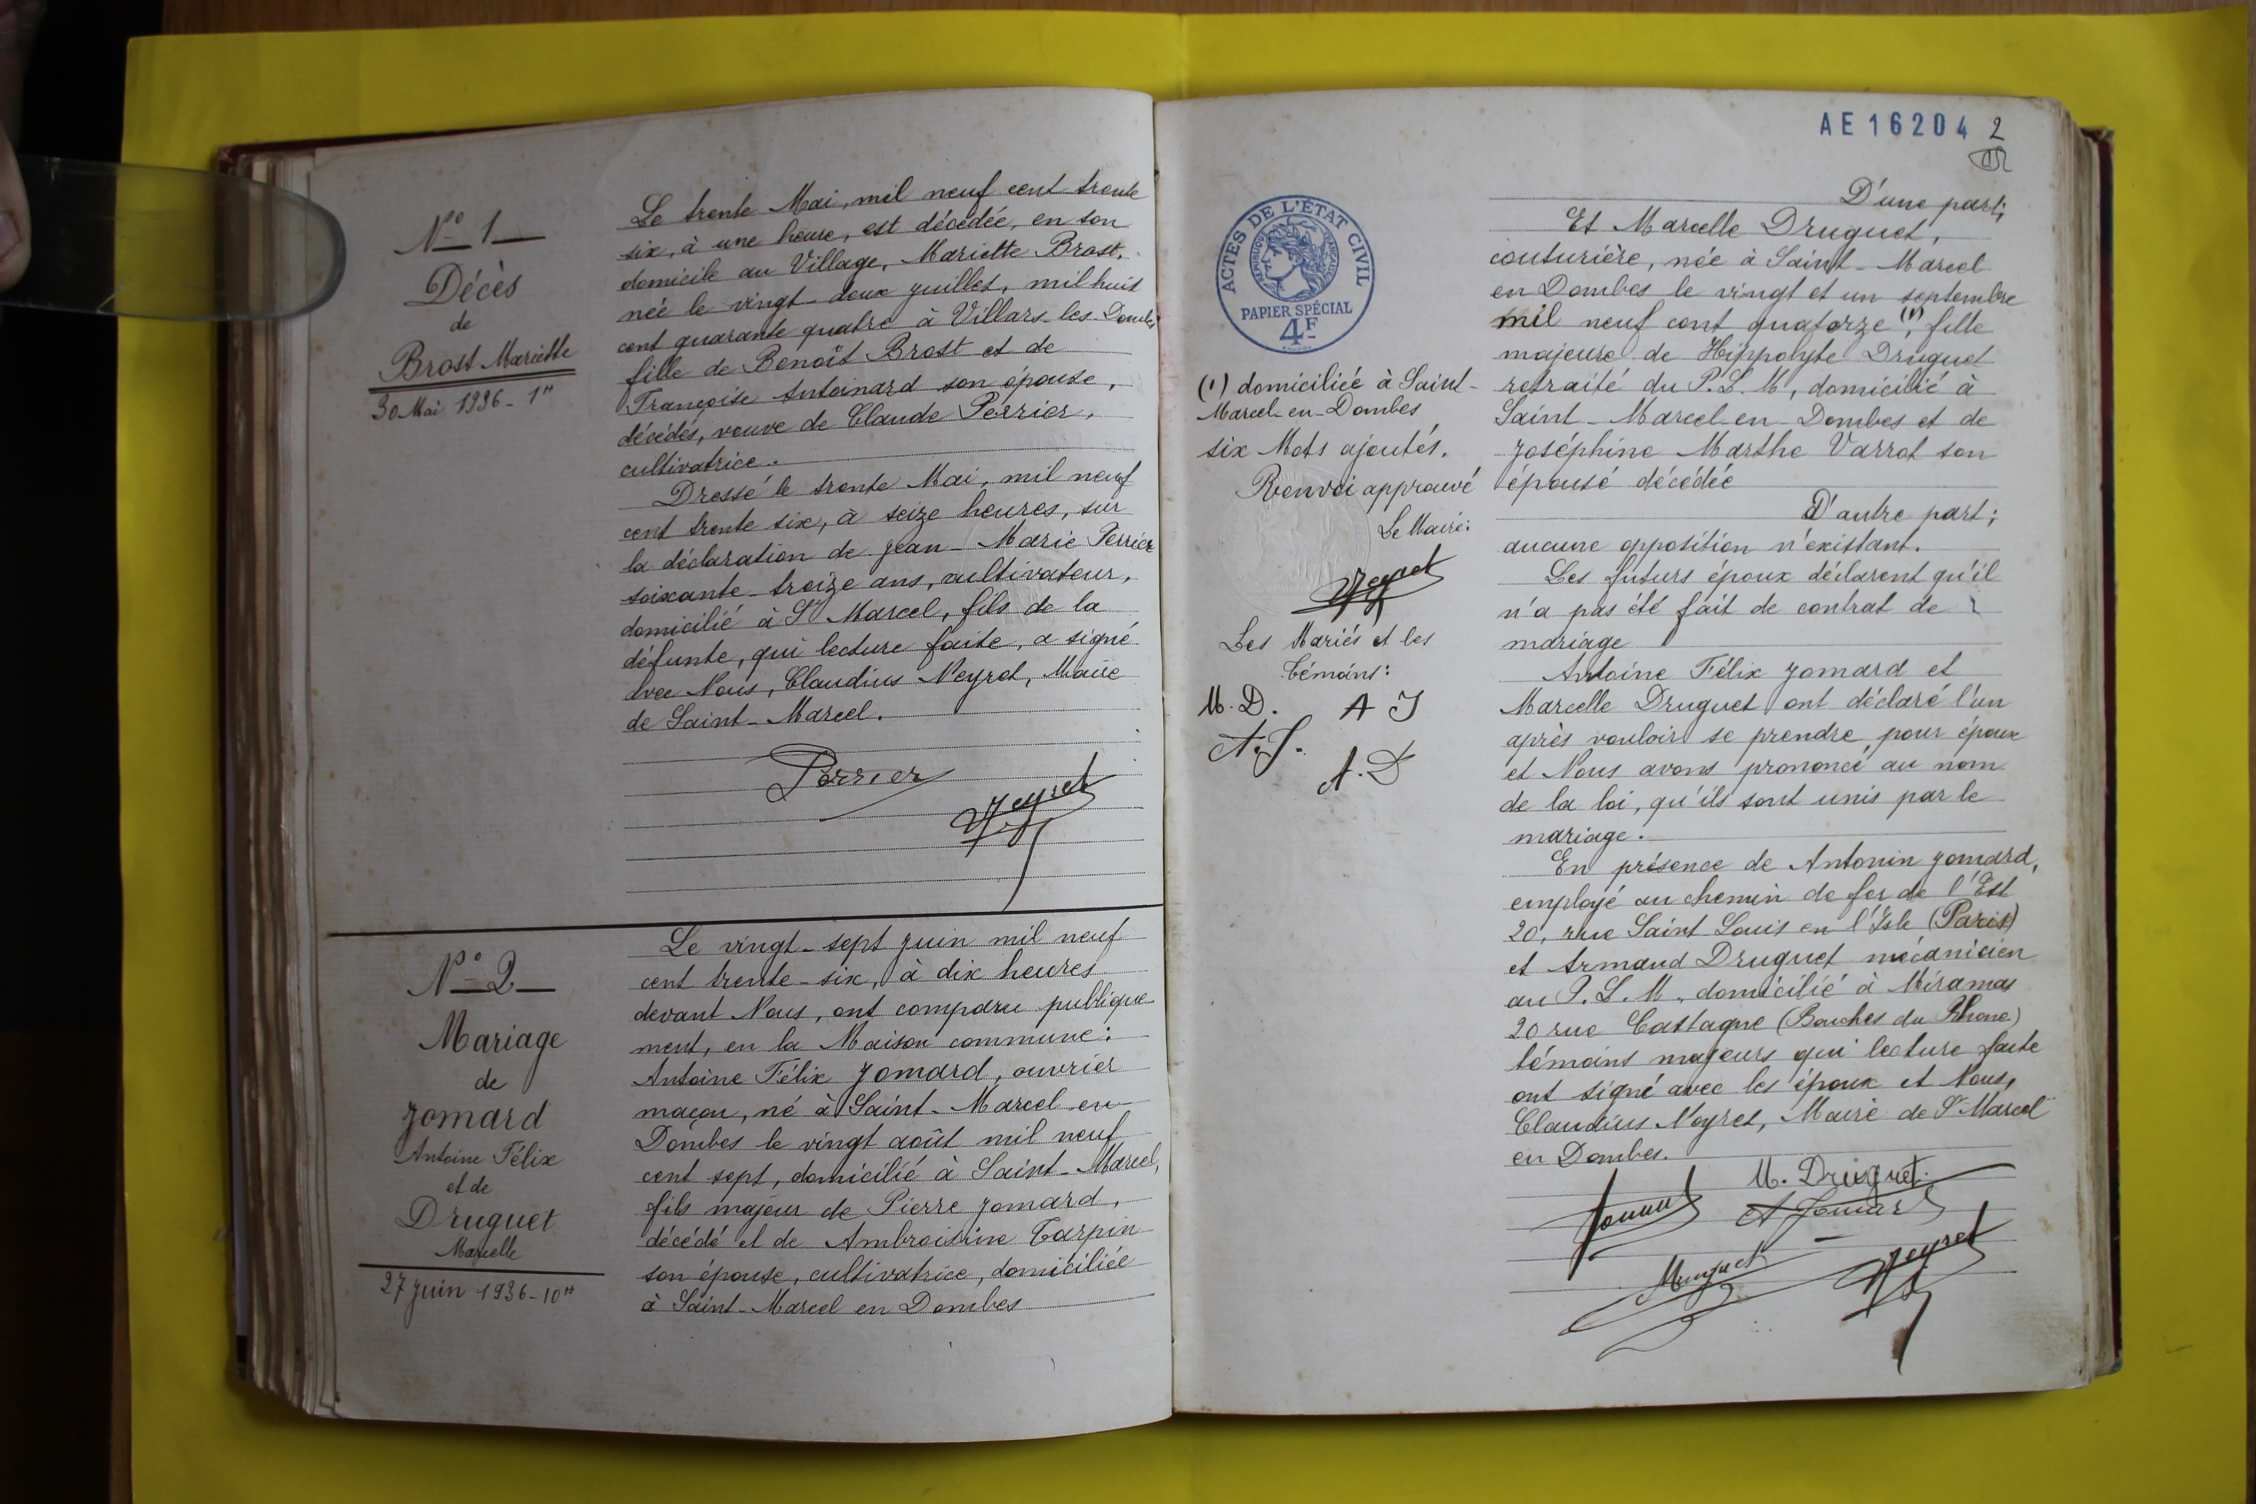 N° 1
Décès
de
Brost Mariette
30 Mai 1936 - 1H
Le trente Mai, mil neuf cent trente
six, à une heure, est décédée, en son
domicile au Village, Mariette Brost,
née le vingt-deux juillet, mil huit
cent quarante quatre à Villars-les-Dombes
fille de Benoît Brost et de
Françoise Antoinard son épouse,
décédés, veuve de Claude Perrier,
cultivatrice.
Dressé le trente Mai, mil neuf
cent trente six, à seize heures, sur
la déclaration de Jean-Marie Perrier
soixante-treize ans, cultivateur,
domicilié à St Marcel, fils de la
défunte, qui lecture faite, a signé
avec Nous, Claudius Neyret, Maire
de Saint-Marcel.
Perrier
Neyret
N° 2
Mariage
de
Jomard
Antoine Félix
et de
Druguet
Marcelle
27 Juin 1936 - 10H
Le vingt-sept juin mil neuf
cent trente-six, à dix heures
devant Nous, ont comparu publique
ment, en la Maison commune:
Antoine Félix Jomard, ouvrier
maçon, né à Saint-Marcel-en
Dombes le vingt août mil neuf
cent sept, domicilié à Saint-Marcel,
fils majeur de Pierre Jomard,
décédé et de Ambroisine Tarpin
son épouse, cultivatrice, domiciliée
à Saint-Marcel en Dombes
AE16204 2
ACTES DE L'ÉTAT CIVIL
RÉPUBLIQUE FRANÇAISE
PAPIER SPÉCIAL
4F
(1) domiciliée à Saint-
Marcel-en-Dombes
six Mots ajoutés.
Renvoi approuvé
Le Maire:
Neyret
Les Mariés et les
témoins:
M. D. A J
A. J.
A. D
D'une part;
Et Marcelle Druguet,
couturière, née à Saint-Marcel
en Dombes le vingt et un septembre
mil neuf cent quatorze (1), fille
majeure de Hippolyte Druguet
retraité du P.L.M, domicilié à
Saint-Marcel-en-Dombes et de
Joséphine Marthe Varrot son
épouse décédée
D'autre part;
aucune opposition n'existant.
Les futurs époux déclarent qu'il
n'a pas été fait de contrat de
mariage
Antoine Félix Jomard et
Marcelle Druguet ont déclaré l'un
après vouloir se prendre, pour époux
et Nous avons prononcé au nom
de la loi, qu'ils sont unis par le
mariage.
En présence de Antonin Jomard,
employé au chemin de fer de l'Est
20, rue Saint Louis en l'Isle (Paris)
et Armand Druguet mécanicien
au P.L.M, domicilié à Miramas
20 rue Castagne (Bouches du Rhône)
témoins majeurs qui lecture faite
ont signé avec les époux et Nous,
Claudius Neyret, Maire de St Marcel
en Dombes.
M. Druguet.
Jomard A Jomard
Druguet Neyret